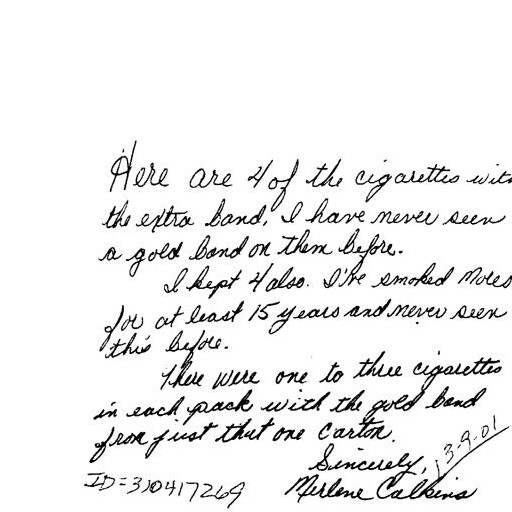 Here are 4 of the cigarettes with
the extra band. I have never seen
a gold band on them before.
I kept 4 also. I've smoked Mores
for at least 15 years and never seen
this before.
There were one to three cigarettes
in each pack with the gold band
from just that one carton.
Sincerely, 3-9-01
ID=310417269 Merlene Calkins